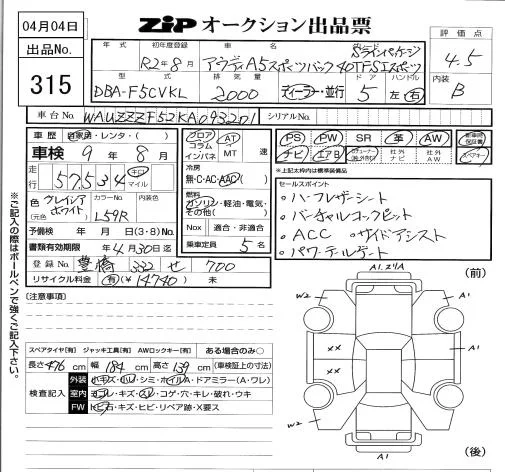 04月04日
ZIP オークション出品票
出品No.
315
年式
初年度登録
車名
評価点
R2年8月
アウディA5スポーツバック40TFSIスポーツ
Sラインパッケージ
4.5
型式
排気量
ドア
ハンドル
内装
DBA-F5CVKL
2000
ディーラー・並行
5
左・右
B
車台No.
WAUZZZF52KA093201
シリアルNo.
車歴
自家用・レンタ・( )
フロア
コラム
インパネ
AT
MT
速
PS
PW
SR
革
AW
ナビ
エアB
社外ナビ
社外AW
車検
9年8月
走行
57,534
キロ
マイル
冷房
無・C・AC・AAC
※上記太枠内は標準装備品
燃料
ガソリン・軽油・電気・その他( )
セールスポイント
・ハーフレザーシート
・バーチャルコックピット
・ACC ・サイドアシスト
・パワーテールゲート
色
グレイシアホワイト
(元色)
カラーNo.
L59R
内装色
予備検
年 月 日(3・8)No.
Nox
適合・非適合
書類有効期限
年4月30日迄
乗車定員
5名
登録No.
豊橋 332 せ 700
リサイクル料金
(有)(¥14740) 未
(注意事項)
(前)
A1.マ1A
W2
A1
スペアタイヤ[有] ジャッキ工具[有] AWロックキー[有]
ある場合のみ○
長さ476cm 幅184cm 高さ139cm (車検証上の寸法)
検査記入
外装
小キズ・小凹・シミ・ホイルA・ドアミラー(A・ワレ)
室内
ヨゴレ・キズ・スレ・コゲ・穴・キレ・破れ・ウキ
FW
トビ石・キズ・ヒビ・リペア跡・X要ス
XX
A1
XX
W2
A1
A1
(後)
※ご記入の際はボールペンで強くご記入下さい。